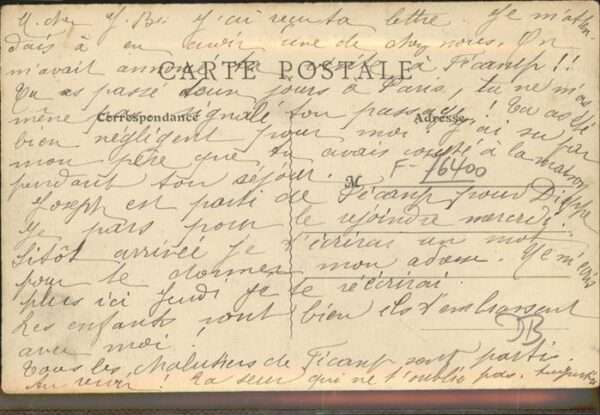 J'ai reçu ta lettre. Je m'atten-
dais à en avoir une de chez nous. On
m'avait annoncé ta à Fécamp!!
CARTE POSTALE
Tu as passé jours à Paris, tu ne m'as
même pas signalé ton passage! Tu as été
Correspondance
Adresse
bien négligent pour moi j'ai su par
mon père que tu avais à la maison
pendant ton séjour.
M
F-16400
Joseph est parti de Fécamp pour Dieppe
je pars pour le rejoindre mercredi.
Sitôt arrivée je t'écrirai un mot
pour te donner mon adresse. Je
plus ici jeudi je te récrirai.
Les enfants vont bien ils t'embrassent
avec moi!
DB
Tous les de Fécamp sont partis.
Au revoir! Ta sœur qui ne t'oublie pas.